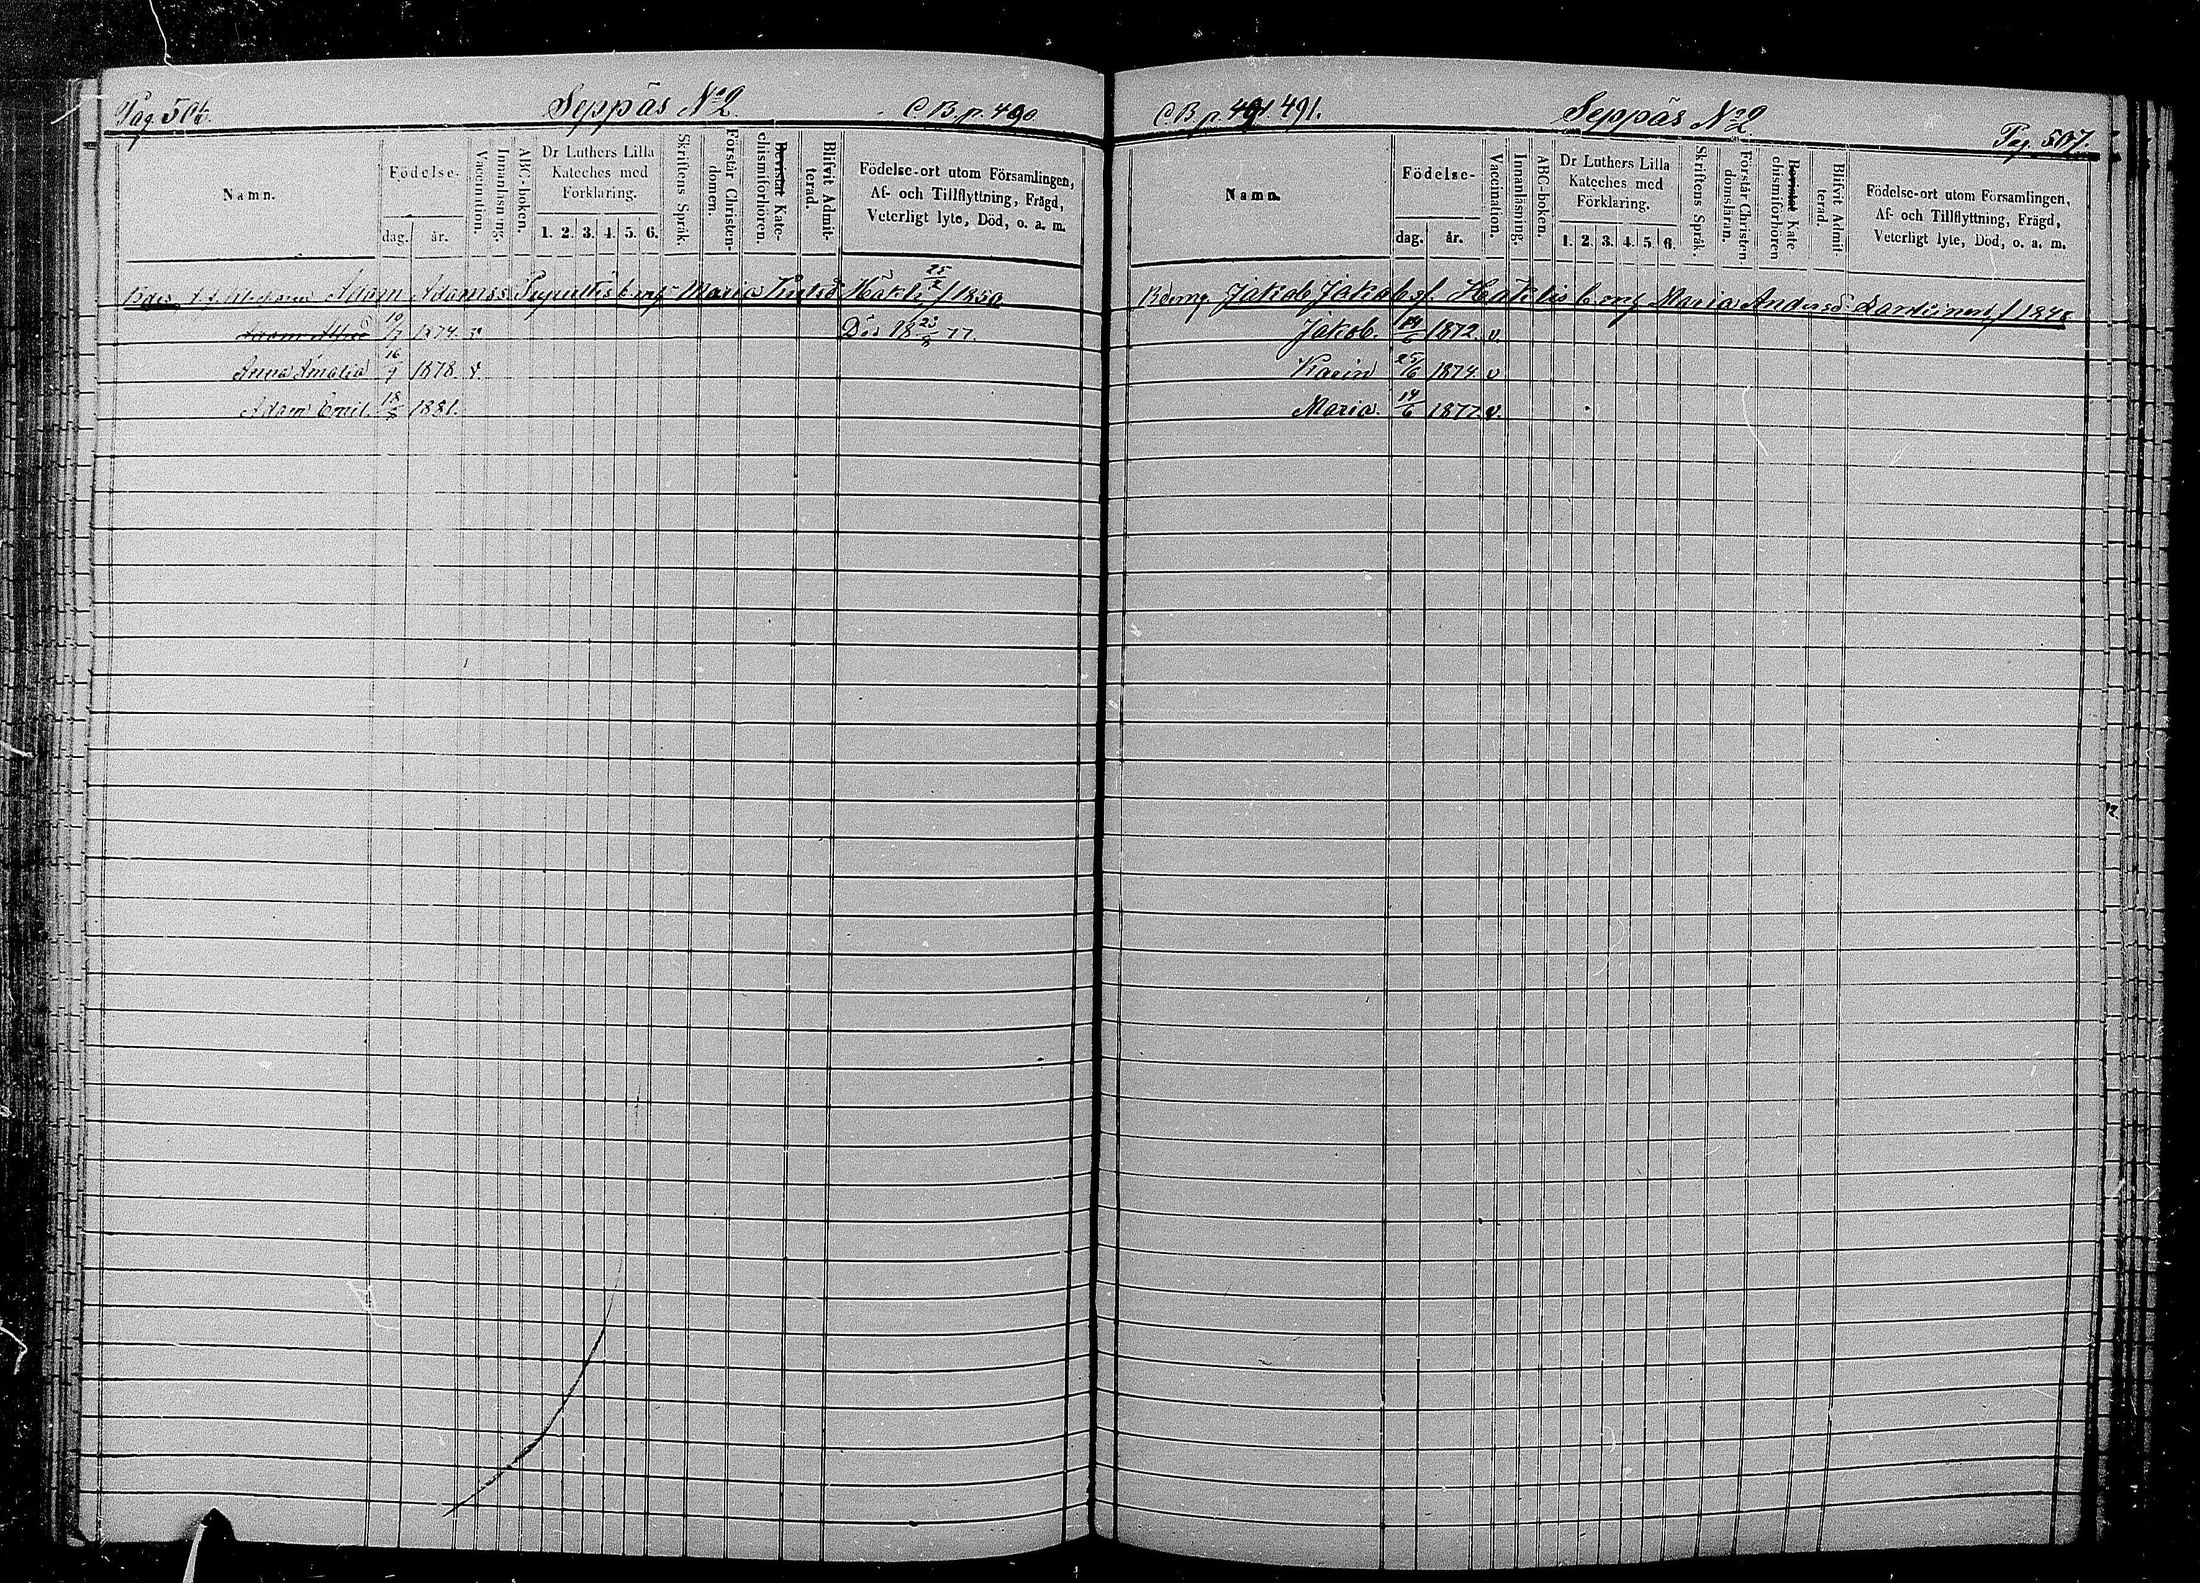 Pag. 506.
Seppäs No 2.
C.B. p. 490
Namn.
Födelse-
dag. år.
Vaccination.
Innanläsning.
ABC-boken.
Dr Luthers Lilla
Kateches med
Förklaring.
1. 2. 3. 4. 5. 6.
Skriftens Språk.
Förstår Christen-
domen.
Bevistat Kate-
chismiförhören.
Blifvit Admit-
terad.
Födelse-ort utom Församlingen,
Af- och Tillflyttning, Frägd,
Veterligt lyte, Död, o. a. m.
Adam Adamss Maria 25/2 1850
Adam 10/7 1874. v Dös 18 23/8 77.
Anna Amalia 16/9 1878. v.
Adam Emil. 18/5 1881.
C.B. p. 491 491.
Seppäs No 2.
Pag. 507.
Namn.
Födelse-
dag. år.
Vaccination.
Innanläsning.
ABC-boken.
Dr Luthers Lilla
Kateches med
Förklaring.
1. 2. 3. 4. 5. 6.
Skriftens Språk.
Förstår Christen
domsläran.
Bevistat Kate
chismiförhören
Blifvit Admit-
terad.
Födelse-ort utom Församlingen,
Af- och Tillflyttning, Frägd,
Veterligt lyte, Död, o. a. m.
Jakob Jakobsf. Maria Andersd 1848
Jakob. 1872. v.
Karin 25/6 1874. v
Maria. 14/6 1877. v.